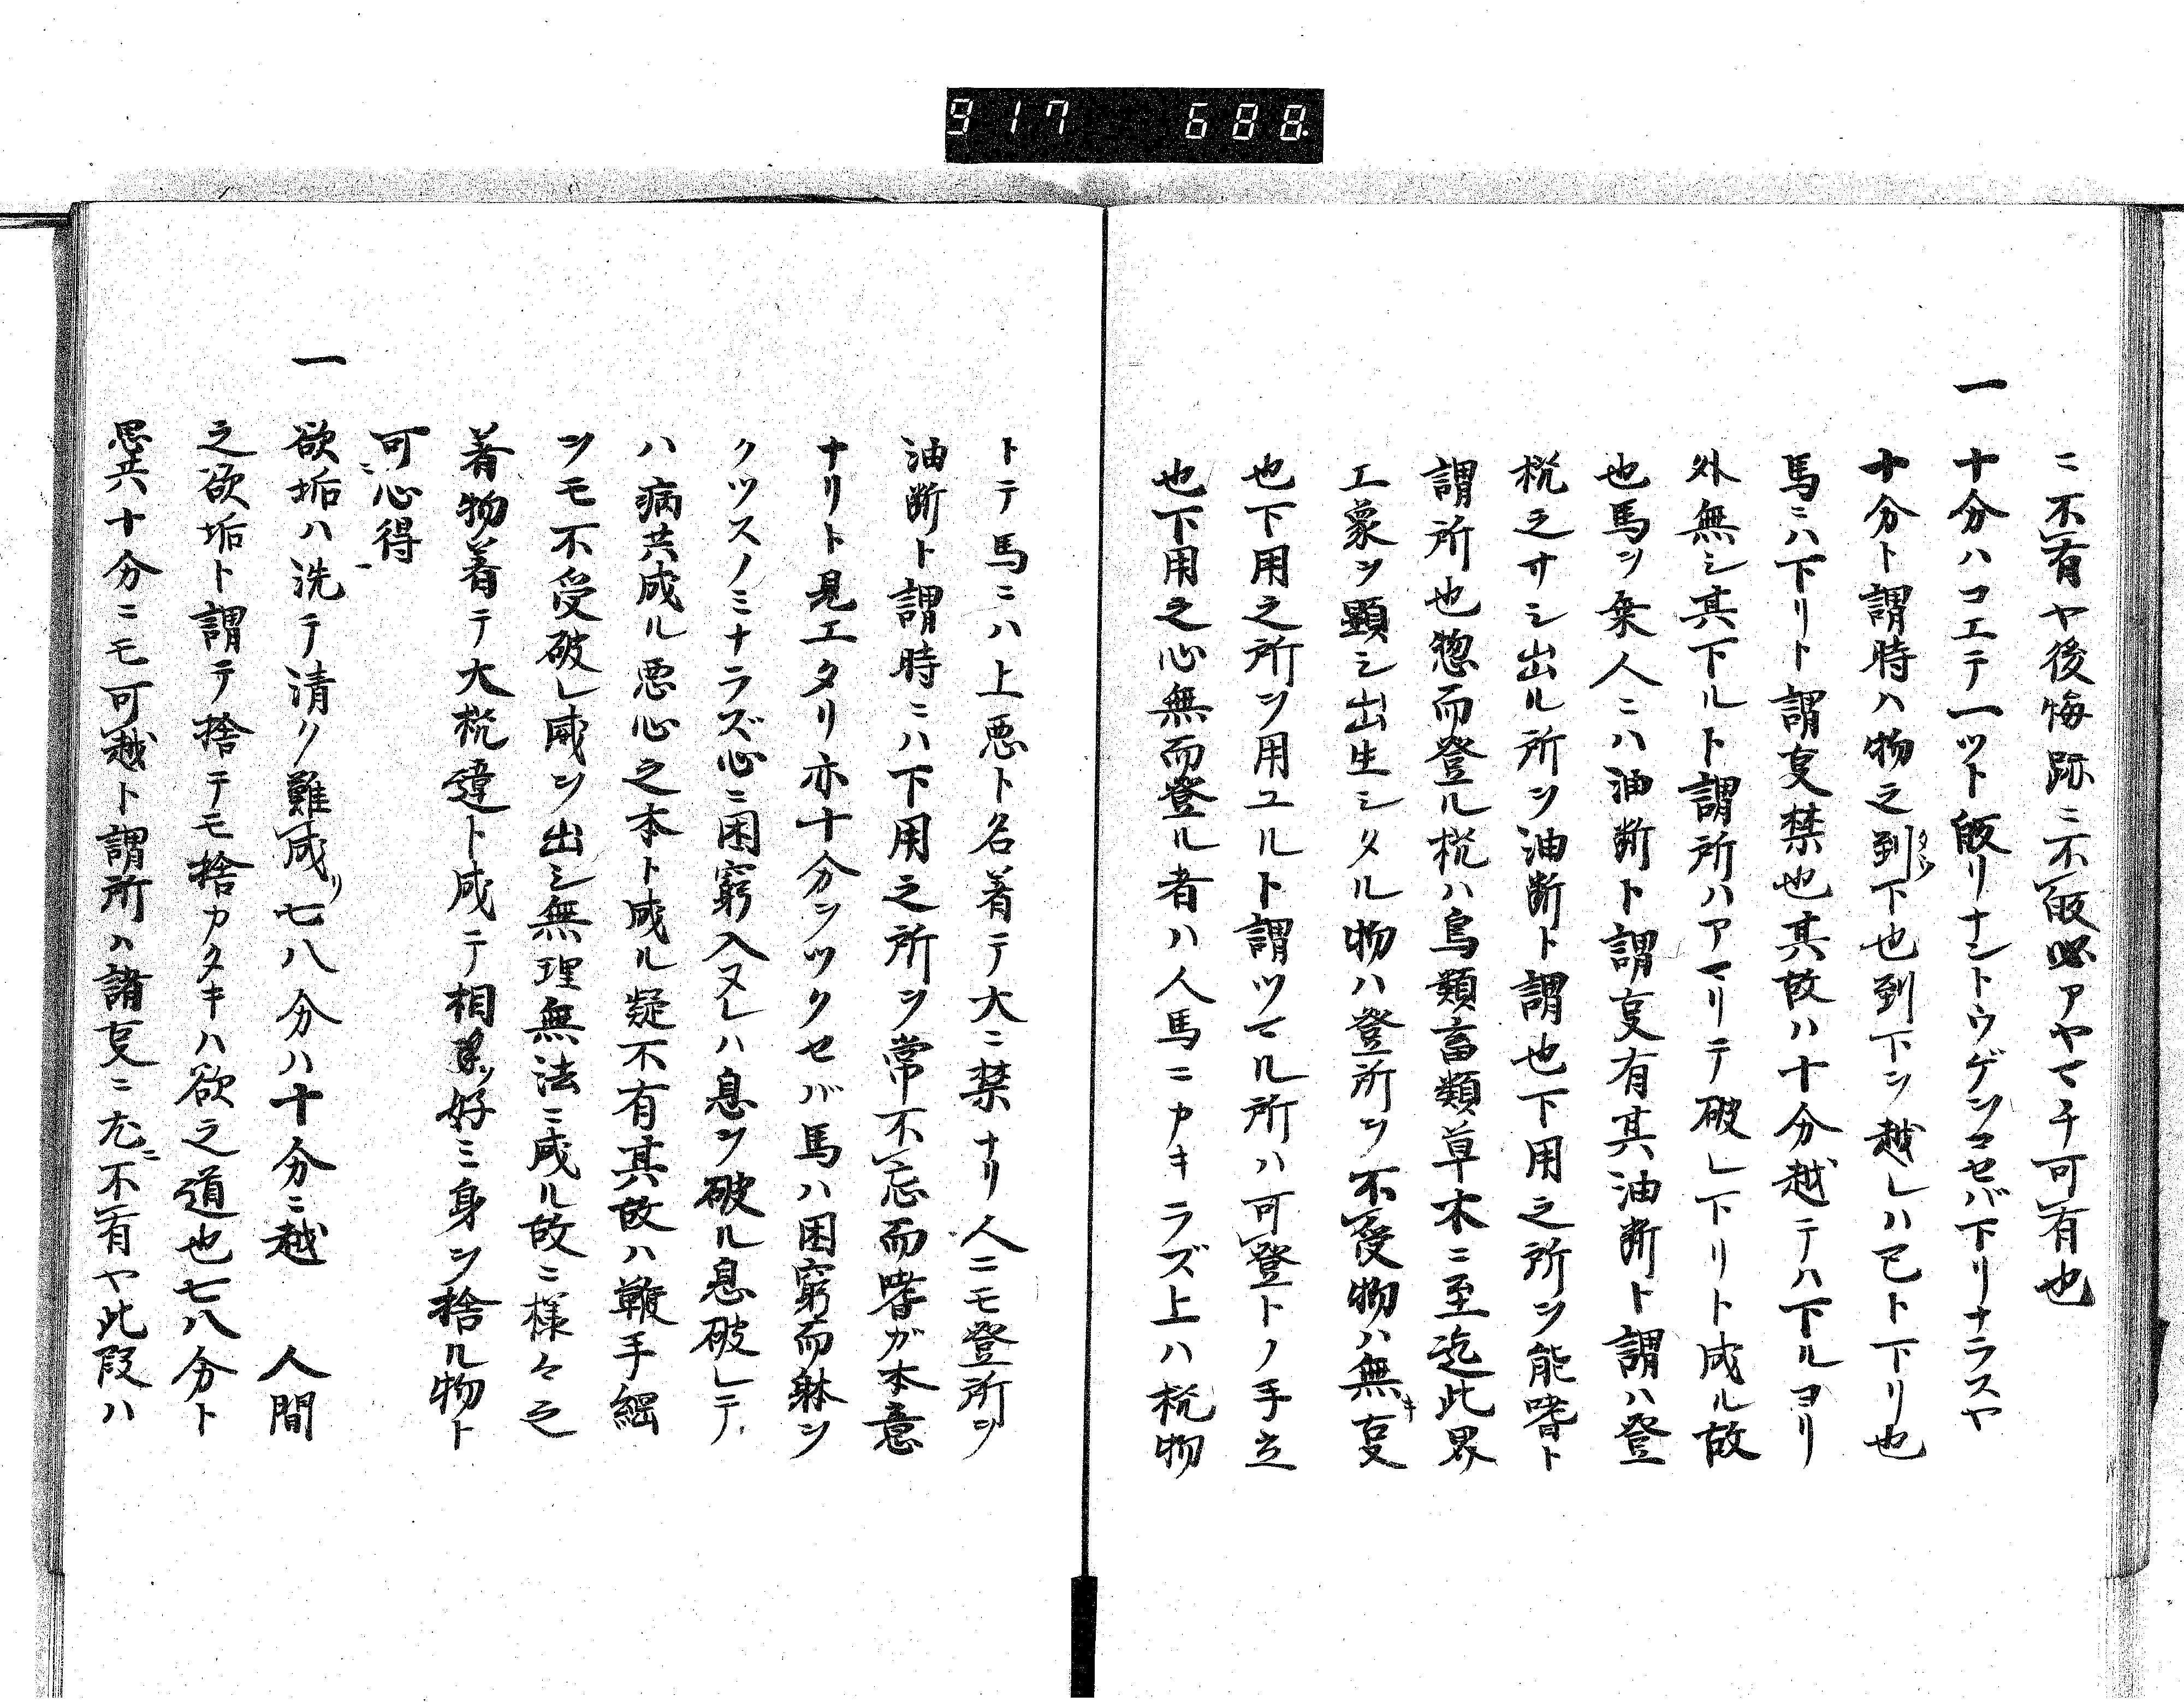 917 688.
ニ不有ヤ後悔跡ニ不皈必アヤマチ可有也
一 十分ハコエテ一ツト皈リナントウゲンコセバ下リナラスヤ
十分ト謂時ハ物之到下也到下ヲ越レハ已ト下リ也
馬ニハ下リト謂叓禁也其故ハ十分越テハ下ルヨリ
外無シ其下ルト謂所ハアマリテ破レ下リト成ル故
也馬ヲ乗人ニハ油断ト謂叓有其油断ト謂ハ登
梲之サシ出ル所ヲ油断ト謂也下用之所ヲ能嗜ト
謂所也惣而登ル梲ハ鳥類畜類草木ニ至迄此界
エ象ヲ顕シ出生シタル物ハ登所ヲ不受物ハ無叓
也下用之所ヲ用ユルト謂ツマル所ハ可登トノ手立
也下用之心無而登ル者ハ人馬ニカキラズ上ハ梲物
トテ馬ニハ上悪ト名著テ大ニ禁ナリ人ニモ登所ヲ
油断ト謂時ニハ下用之所ヲ常不忘而嗜ガ本意
ナリト見エタリ亦十分ヲツクセバ馬ハ困窮而躰ヲ
クツスノミナラズ心ニ困窮入ヌレハ息ヲ破ル息破レテ
ハ病共成ル悪心之本ト成ル疑不有其故ハ鞭手綱
ヲモ不受破レ威ヲ出シ無理無法ニ成ル故ニ様々之
著物着テ大梲違ト成テ相好ミ身ヲ捨ル物ト
可心得
一 欲垢ハ洗テ清ク難成七八分ハ十分ニ越 人間
之欲垢ト謂テ捨テモ捨カタキハ欲之道也七八分ト
思共十分ニモ可越ト謂所ハ諸叓ニ尤不有ヤ此段ハ